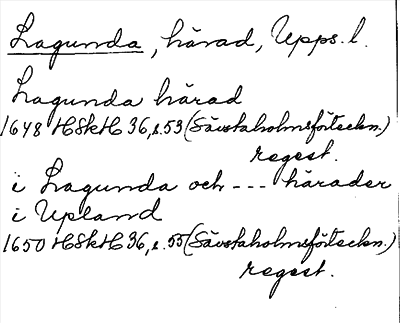 Lagunda, härad, Upps. l.
Lagunda härad
1648 HSkH 36, s. 53 (Sävstaholmsförteckn.)
regest.
i Lagunda och --- härader
i Upland
1650 HSkH 36, s. 55 (Sävstaholmsförteckn.)
regest.